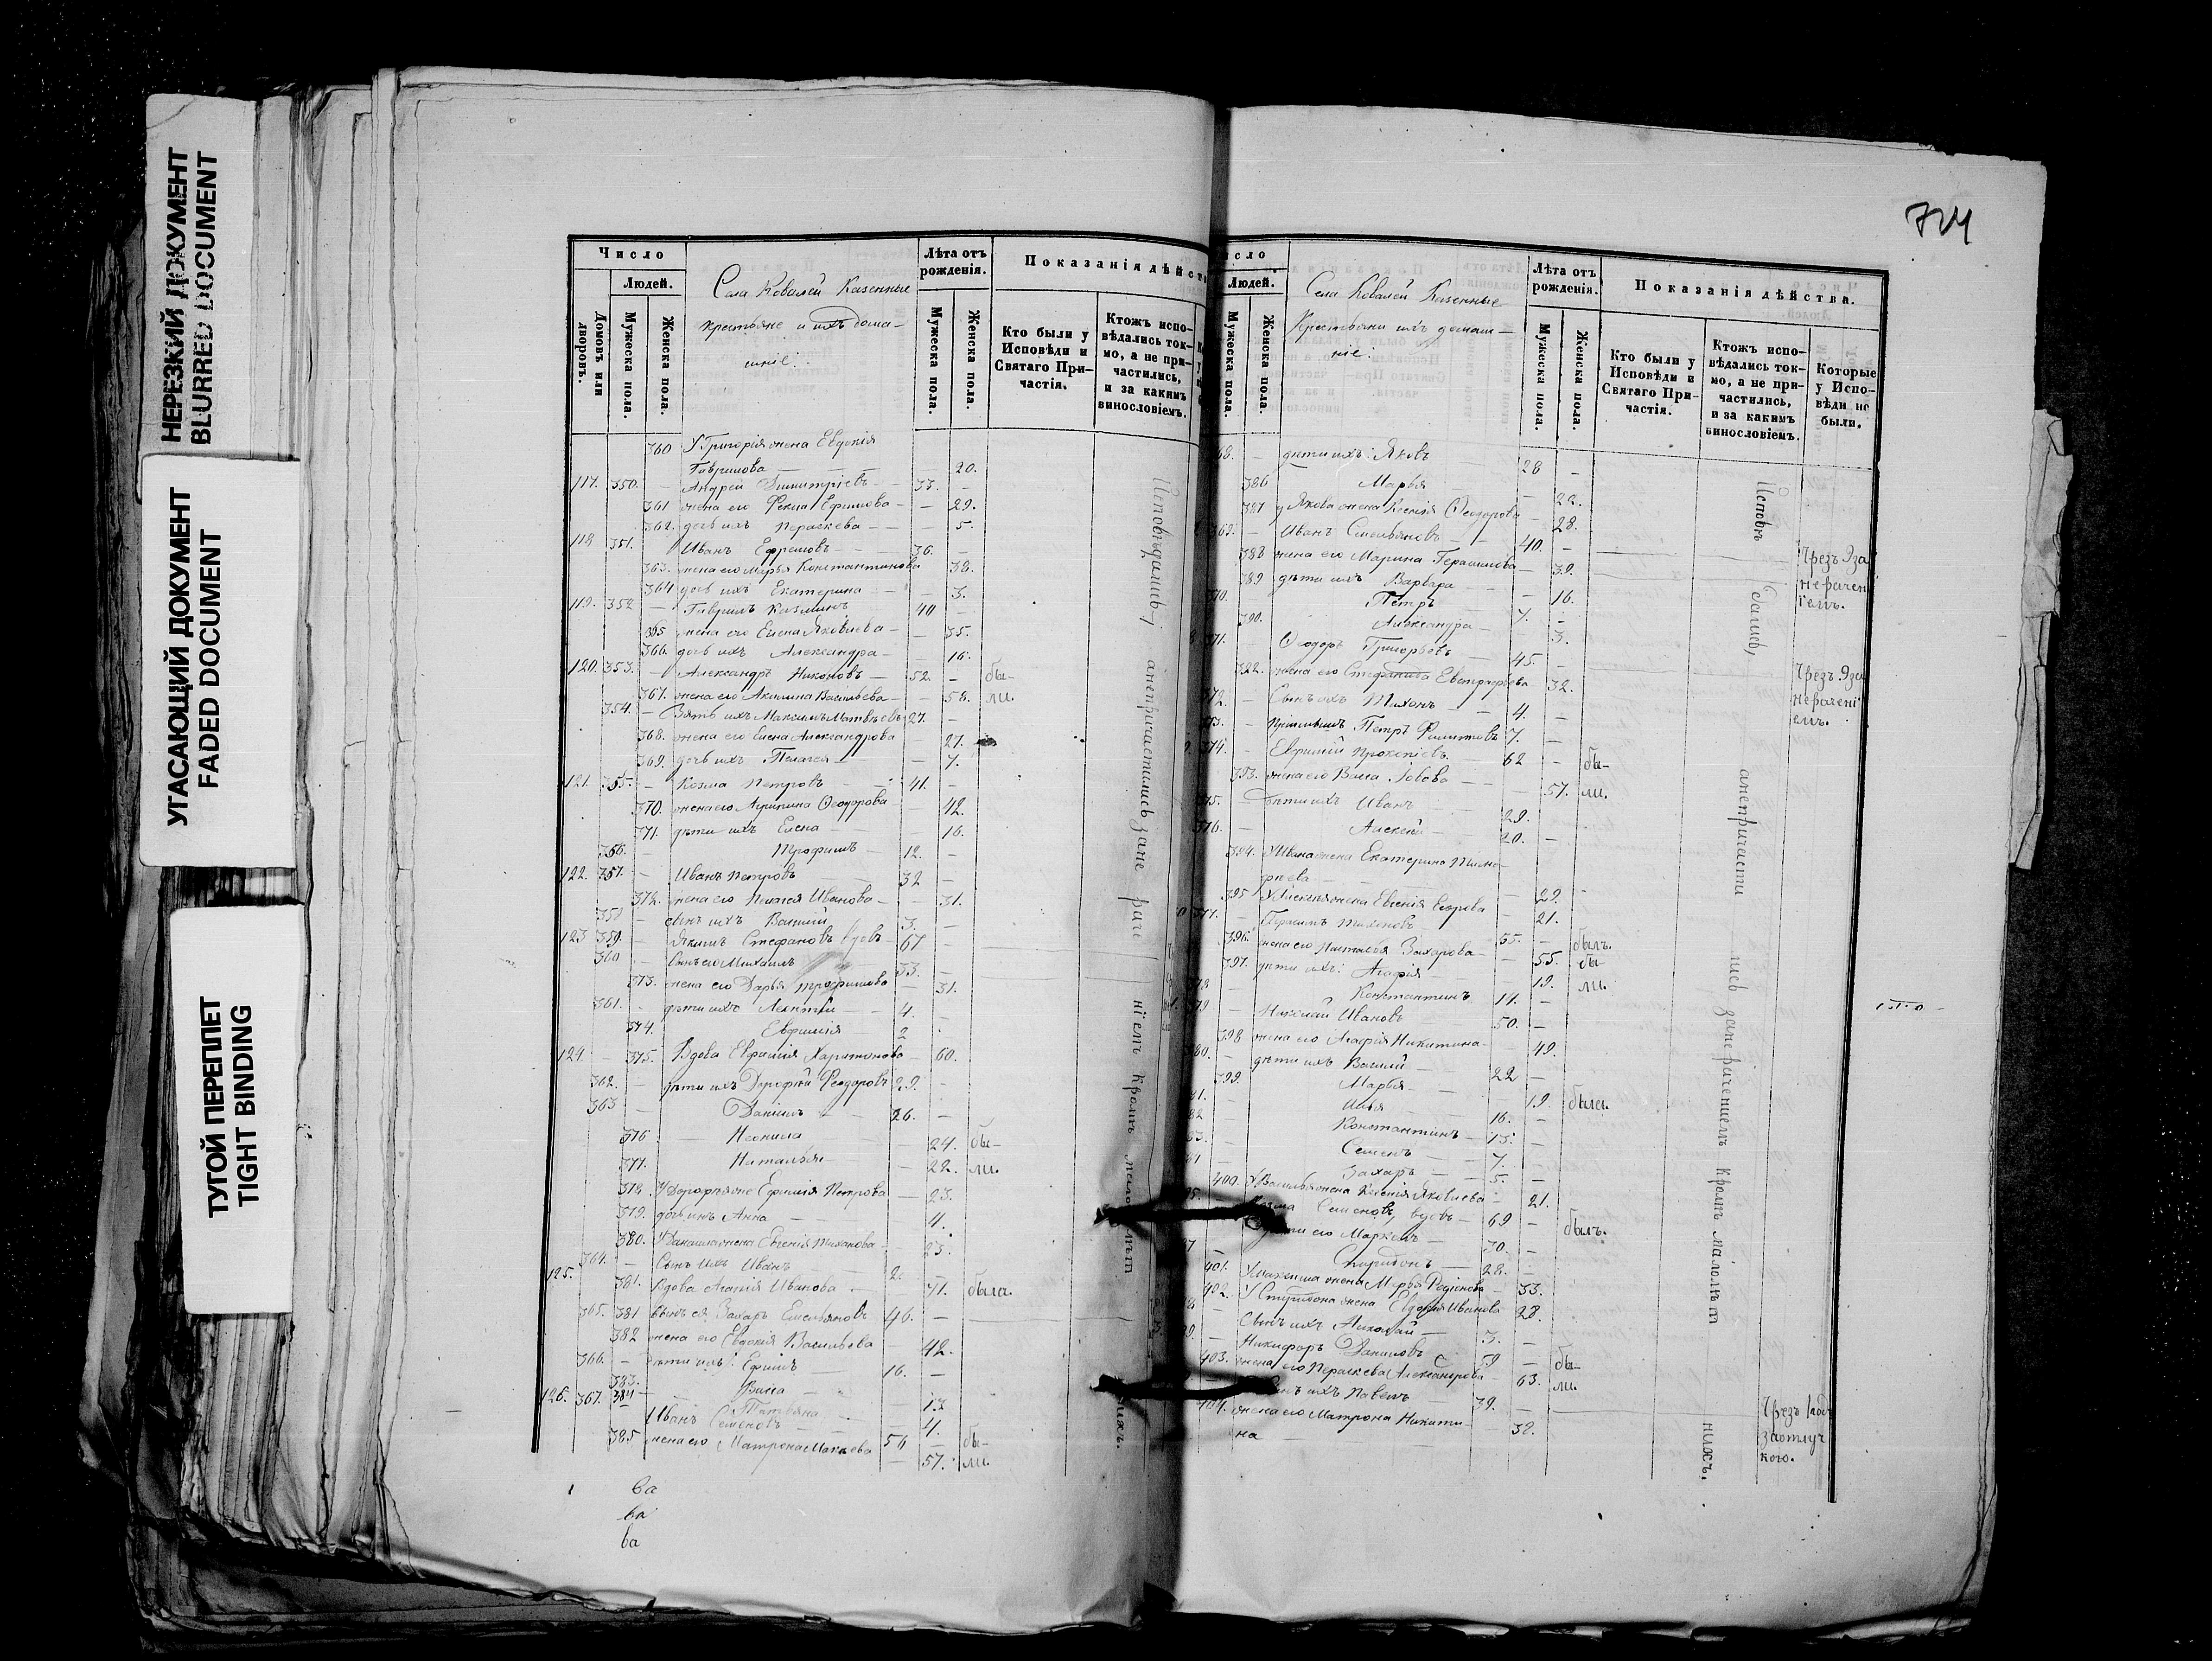 НЕРЕЗКИЙ ДОКУМЕНТ
BLURRED DOCUMENT
УГАСАЮЩИЙ ДОКУМЕНТ
FADED DOCUMENT
ТУГОЙ ПЕРЕПЛЕТ
TIGHT BINDING
Число
Людей.
Домовъ или дворовъ.
Мужеска пола.
Женска пола.
Села Ковалей Казенные
крестьяне и ихъ дома-
шніе:
Лѣта отъ рожденія.
Мужеска пола.
Женска пола.
Показанія дѣйст
Кто были у Исповѣди и Святаго При-частія.
Ктожъ испо-вѣдались ток-мо, а не при-частились, и за какимъ винословіемъ.
360 У Григорія жена Евдокія
Гаврилова — 20.
117. 350. — Андрей Димитріевъ — 33. —
361 жена его Фекла Ефимова — — 29.
362. дочь ихъ Параскева — — 5.
118 351. Иванъ Ефремовъ — 36. —
363. жена его Марья Константинова 38.
364 дочь ихъ Екатерина — 3.
119. 352 — Гавріилъ Казминъ 40 —
365 жена его Елена Яковлева — — 35.
366. дочь ихъ Александра — — 16.
120. 353. — Александръ Никоновъ — 52. — бы-
367. жена его Акилина Васильева — — 58. ли.
354. — Зять ихъ Максимъ Матвѣевъ 27. —
368. жена его Елена Александрова — 27.
369. дочь ихъ Пелагея — — 7.
121. 355. — Козма Петровъ — 41. —
370. жена его Ирина Ѳеодорова — 42.
371. дѣти ихъ Елена — — 16.
356. — Трофимъ — 12. —
122. 357. — Иванъ Петровъ 32 —
372. жена его Пелагея Иванова — — 31.
358 — сынъ ихъ Василій 3. —
123 359. — Акимъ Стефановъ вдовъ — 67 —
360 сынъ его Михаилъ 33. —
373. жена его Дарья Трофимова — 31.
361. — дѣти ихъ Леонтій — 4. —
374. Евфимія — 2
124 — 375. Вдова Евфимія Харитонова — 60.
362. — дѣти ихъ Дорофей Ѳеодоровъ 29. —
363 — Даніилъ — 26. —
376 — Неонила — 24. бы-
377. Наталья — — 22. ли.
378 У Дорофея жена Ефимія Петрова — 23.
379. дочь ихъ Анна — — 4.
380. У Данила жена Евгенія Тиханова — 23.
364. — Сынъ ихъ Иванъ — 2.
125. 381. Вдова Агафія Иванова — — 71. была.
365. 381 сынъ ея Захаръ Емельяновъ 46. —
382 жена его Евдокія Васильева — 42.
366. — дѣти ихъ: Ефимъ — 16. —
383. Васса — 13
384 — Татьяна — 4.
126. 367. Иванъ Семеновъ — 56 — бы-
385 жена его Матрона Макеева — 57. ли.
ва
ва
ва
Исповѣдались, а не причастились за не раченіемъ кромѣ малолѣтнихъ.
724
исло
Людей.
Мужеска пола.
Женска пола.
Села Ковалей Казенные
Крестьяни ихъ домаш-
ніе:
Лѣта отъ рожденія.
Мужеска пола.
Женска пола.
Показанія дѣйства.
Кто были у Исповѣди и Святаго При-частія.
Ктожъ испо-вѣдались ток-мо, а не при-частились, и за какимъ винословіемъ.
Которые у Испо-вѣди не были.
68. — дѣти ихъ: Яковъ 28 —
386 Марья — 22.
387 у Якова жена Ксенія Ѳеодорова — 28.
369. — Иванъ Емельяновъ — 40. —
388 жена его Марина Герасимова — 39.
389 дѣти ихъ Варвара — 16.
370. Петръ — 7. —
390. Александра — 3.
371. — Ѳеодоръ Григорьевъ — 45. —
392. жена его Стефанида Евстафьева 32.
372. — Сынъ ихъ Тихонъ — 4. —
373. — Петръ Филиповъ 7. —
374. — Евфимій Прокопіевъ — 62 — бы-
393. жена его Васса Львова — 57. ли.
375. — дѣти ихъ Иванъ — 29. —
376. — Алексѣй — 20. —
394. У Ивана жена Екатерина Тимо-
фѣева — — 29.
395 У Алексѣя жена Евгенія Егорова — 21.
377. — Герасимъ Тихоновъ — 55. — былъ.
396. жена его Наталья Захарова — 55. бы-
397. дѣти ихъ: Агафія — 19. ли.
378 — Константинъ 11. —
379 — Николай Ивановъ — 50. —
398 жена его Агафія Никитина — 49.
380. — дѣти ихъ Василій — 22 —
399. Марья — — 19. была.
81. — Илья — 16. —
82 — Константинъ — 13. —
83. — Семенъ — 7. —
84 — Захаръ — 5. —
400. У Василья жена Ксенія Яковлева — 21.
85. Козма Семеновъ, вдовъ — 69 — былъ.
дѣти его Маркелъ — 30. —
87 — Спиридонъ — 28. —
401. У Маркела жена Марѳа Родіонова — 33.
402. У Спиридона жена Евдокія Иванова 28.
88 — Сынъ ихъ Николай — 3. —
89. — Никифоръ Даниловъ 59 — бы-
403. жена его Параскева Александрова 63. ли.
сынъ ихъ Павелъ 39. —
404. жена его Матрона Никити-
на — — 38.
Исповѣдались, а не причастились за не раченіемъ кромѣ малолѣтнихъ.